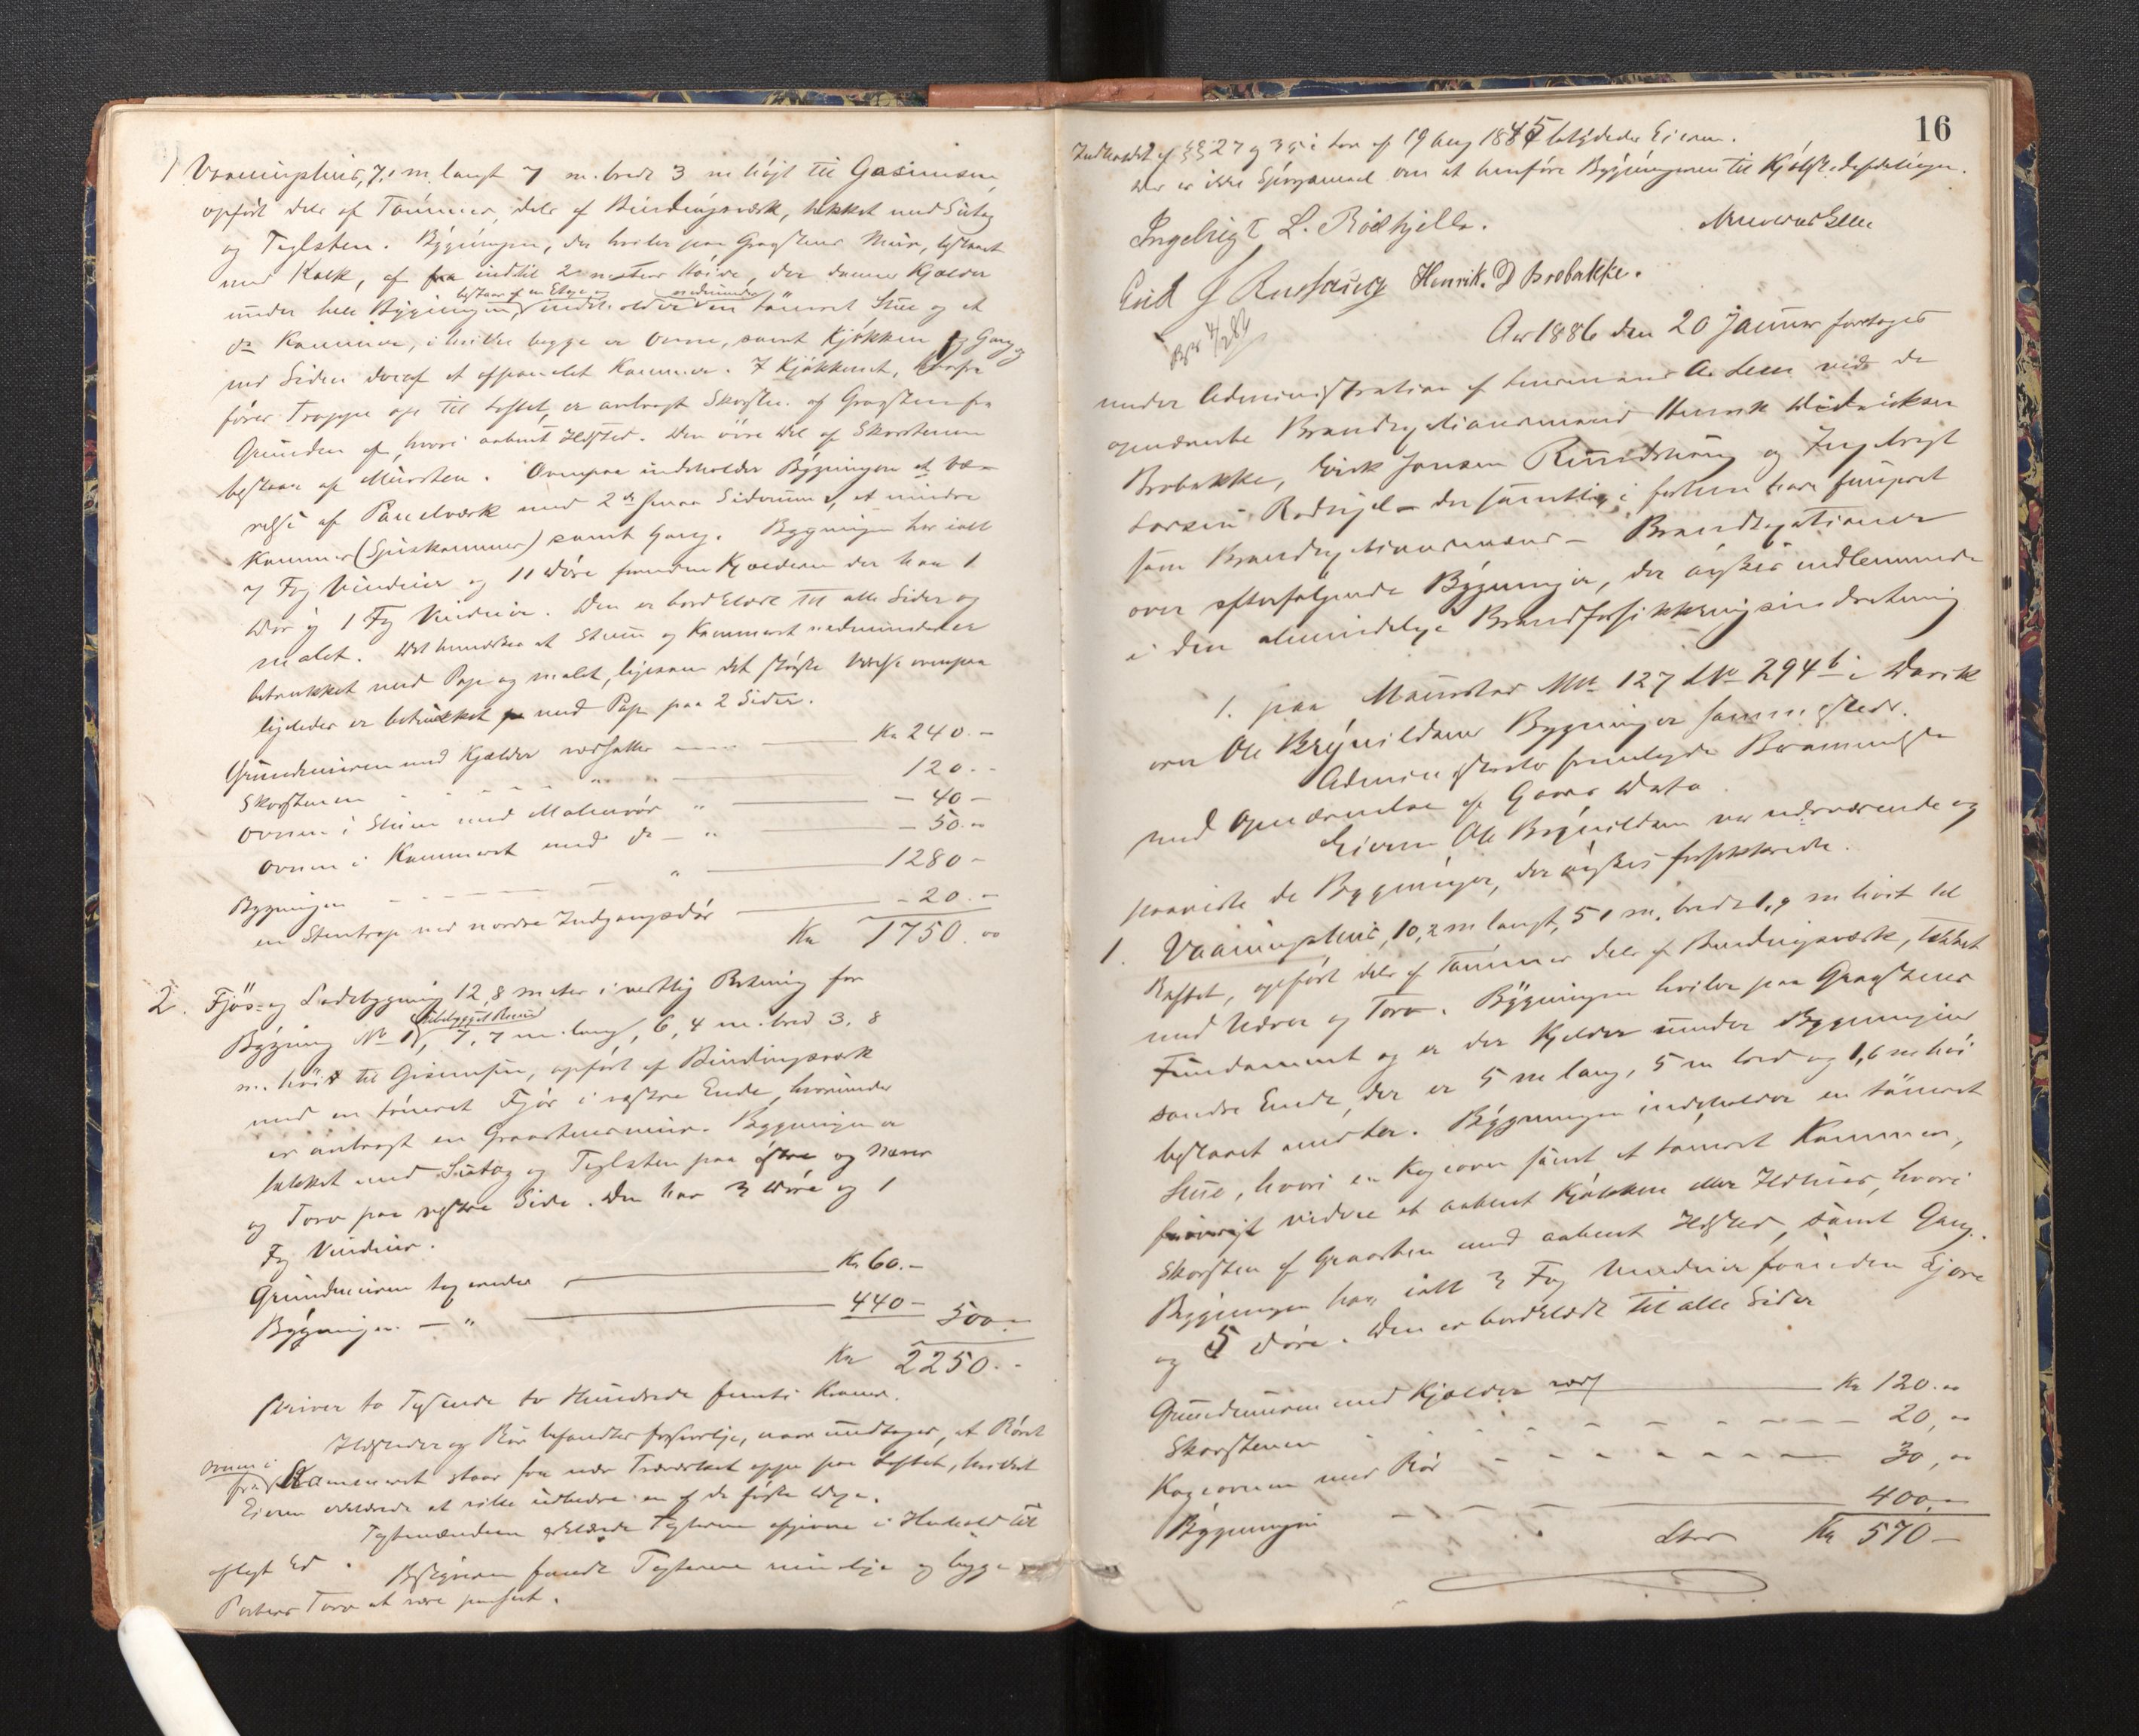 1 Vaaningshus, 7,1 m. langt 7 m. bredt 3 m høit til Gesimsen,
opført dels af Tømmer, dels af Bindingsværk, tækket med Sutag
og Teglsten. Bygningen, der hviler paa Graastens Mur, beslaaet
med Kalk, af indtil 2 meters Høide, der danner Kjælder
bestaar af en Etage og nedenunder
under hele Bygningen, indeholder en tømret Stue og et
do Kammer, i hvilke begge er Ovne, samt Kjøkken og Gang og
ved Siden deraf et afpanelet Kammer. I Kjøkkenet, hvorfra
fører Trappe op til Loftet, er anbragt Skorsten af Graasten fra
Grunden af, hvori aabent Ildsted. Den øvre Del af Skorstenen
bestaar af Mursten. Ovenpaa indeholder Bygningen et Væ-
relse af Panelværk med 2de smaa Siderum, et mindre
Kammer (Spiskammer) samt Gang. Bygningen har ialt
7 Fag Vinduer og 11 Døre foruden Kjælderen der har 1
Dør og 1 Fag Vinduer. Den er bordklædt til alle Sider og
malet. Det bemærkes at Stuen og Kammeret nedenunder er
betrukket med Pap og malet, ligesom det største Værelse ovenpaa
ligeledes er betrukket med Pap paa 2 Sider.
Grundmuren med Kjælder værdsattes Kr 240.-
Skorstenen " 120.-
Ovnen i Stuen med Rør " - 40 -
Ovnen i Kammeret med do - " - 50.-
Bygningen " 1280 -
en Stentrap ved nordre Indgangsdør - 20.-
Kr 1750.00
2. Fjøs- og Ladebygning 12,8 meter i vestlig Retning for
ubebygget Rum
Bygning No 1, 7,7 m. lang, 6,4 m. bred 3.8
m. høit til Gesimsen, opført af Bindingsværk
med en tømret Fjøs i vestre Ende, hvorunder
er anbragt en Graastensmur. Bygningen er
tækket med Sutag og Teglsten paa østre og Næver
og Torv paa vestre Side. Den har 3 Døre og 1
Fag Vinduer.
Grundmuren Kr 60.-
Bygningen - " 440 - 500.-
Kr 2250.-
skriver to Tusende to Hundrede femti Kroner.
Ildsteder og Rør befandtes forsvarlige, naar undtages, at Røret
ovnen i
fra Kammeret staar for nær Træværket oppe paa Loftet, hvilket
Eieren erklærede at ville udbedre en af de første Dage.
Taxtmændene erklærede Taxterne afgivne i Henhold til
aflagt Ed. Bestyreren fandt Taxterne rimelige og begge
Parter at være passet.
16
Indholdet af §§ 27 og 35 i Lov af 19 Aug 1845 betydedes Eieren.
Der er ikke Spørgsmaal om at henføre Bygningerne til
Ingebrigt L. Rødhjella.
Henrik. D Brobakke.
Aar 1886 den 20 Januar foretoges
under Administration af Lensmand A. Lem ved de
opnævnte Brandtaxtionsmænd Henrik Didriksen
Brobakke, Eirik Jonsen og Ingebrigt
Larsen - der samtlige i forhen have fungeret
som Brandtaxtionsmænd - Brandtaxtioner
over efterfølgende Bygninger, der ønskes indlemmede
i den almindelige Brandforsikringsindretning
1. paa MNo 127 LNo 294b i Davik
over Ole Brynildsens Bygninger sammesteds.
Administrator fremlagde Berammelse
med Opnævnelse af Gaars Dato.
Eieren Ole Brynildsen var nærværende og
paaviste de Bygninger, der ønskes forsikkrede.
1. Vaaningshus, 10,2 m langt, 5 1 m. bredt 1,9 m høit til
Raftet, opført dels af Tømmer dels af Bindingsværk, tækket
med Næver og Torv. Bygningen hviler paa Graastens
Fundament og er der Kjelder under Bygningens
søndre Ende, der er 5 m lang, 5 m bred og 1,6 m høi
beslaaet med Ler. Bygningen indeholder en tømret
Stue, hvori en Kogeovn samt et tømret Kammer,
forøvrigt videre et aabent Kjøkken eller Ildhus, hvori
Skorsten af Graasten med aabent Ildsted, samt Gang.
Bygningen har ialt 3 Fag Vinduer foruden Ljore
og 5 Døre. Den er bordklædt til alle Sider
Grundmuren med Kjælder værds Kr 120.00
Skorstenen 20,00
Kogeovnen med Rør 30,00
Bygningen 400.-
Kr 570 -